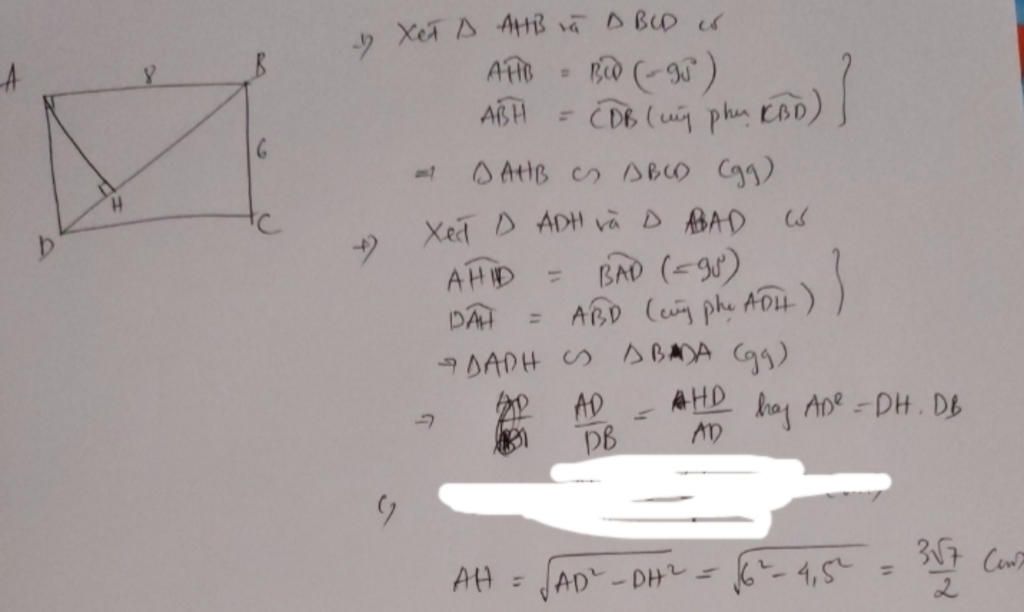 A 8 B
6
H
D C
=> Xét Δ AHB và Δ BCD có
AHB = BCD (=90°)
ABH = CDB (cùng phụ CBD)
=> Δ AHB ∽ Δ BCD (gg)
+) Xét Δ ADH và Δ BAD có
AHD = BAD (=90°)
DAH = ABD (cùng phụ ADH)
=> Δ ADH ∽ Δ BDA (gg)
=> AD/DB = HD/AD hay AD² = DH . DB
c,
AH = √(AD² - DH²) = √(6² - 4,5²) = 3√7/2 (cm)